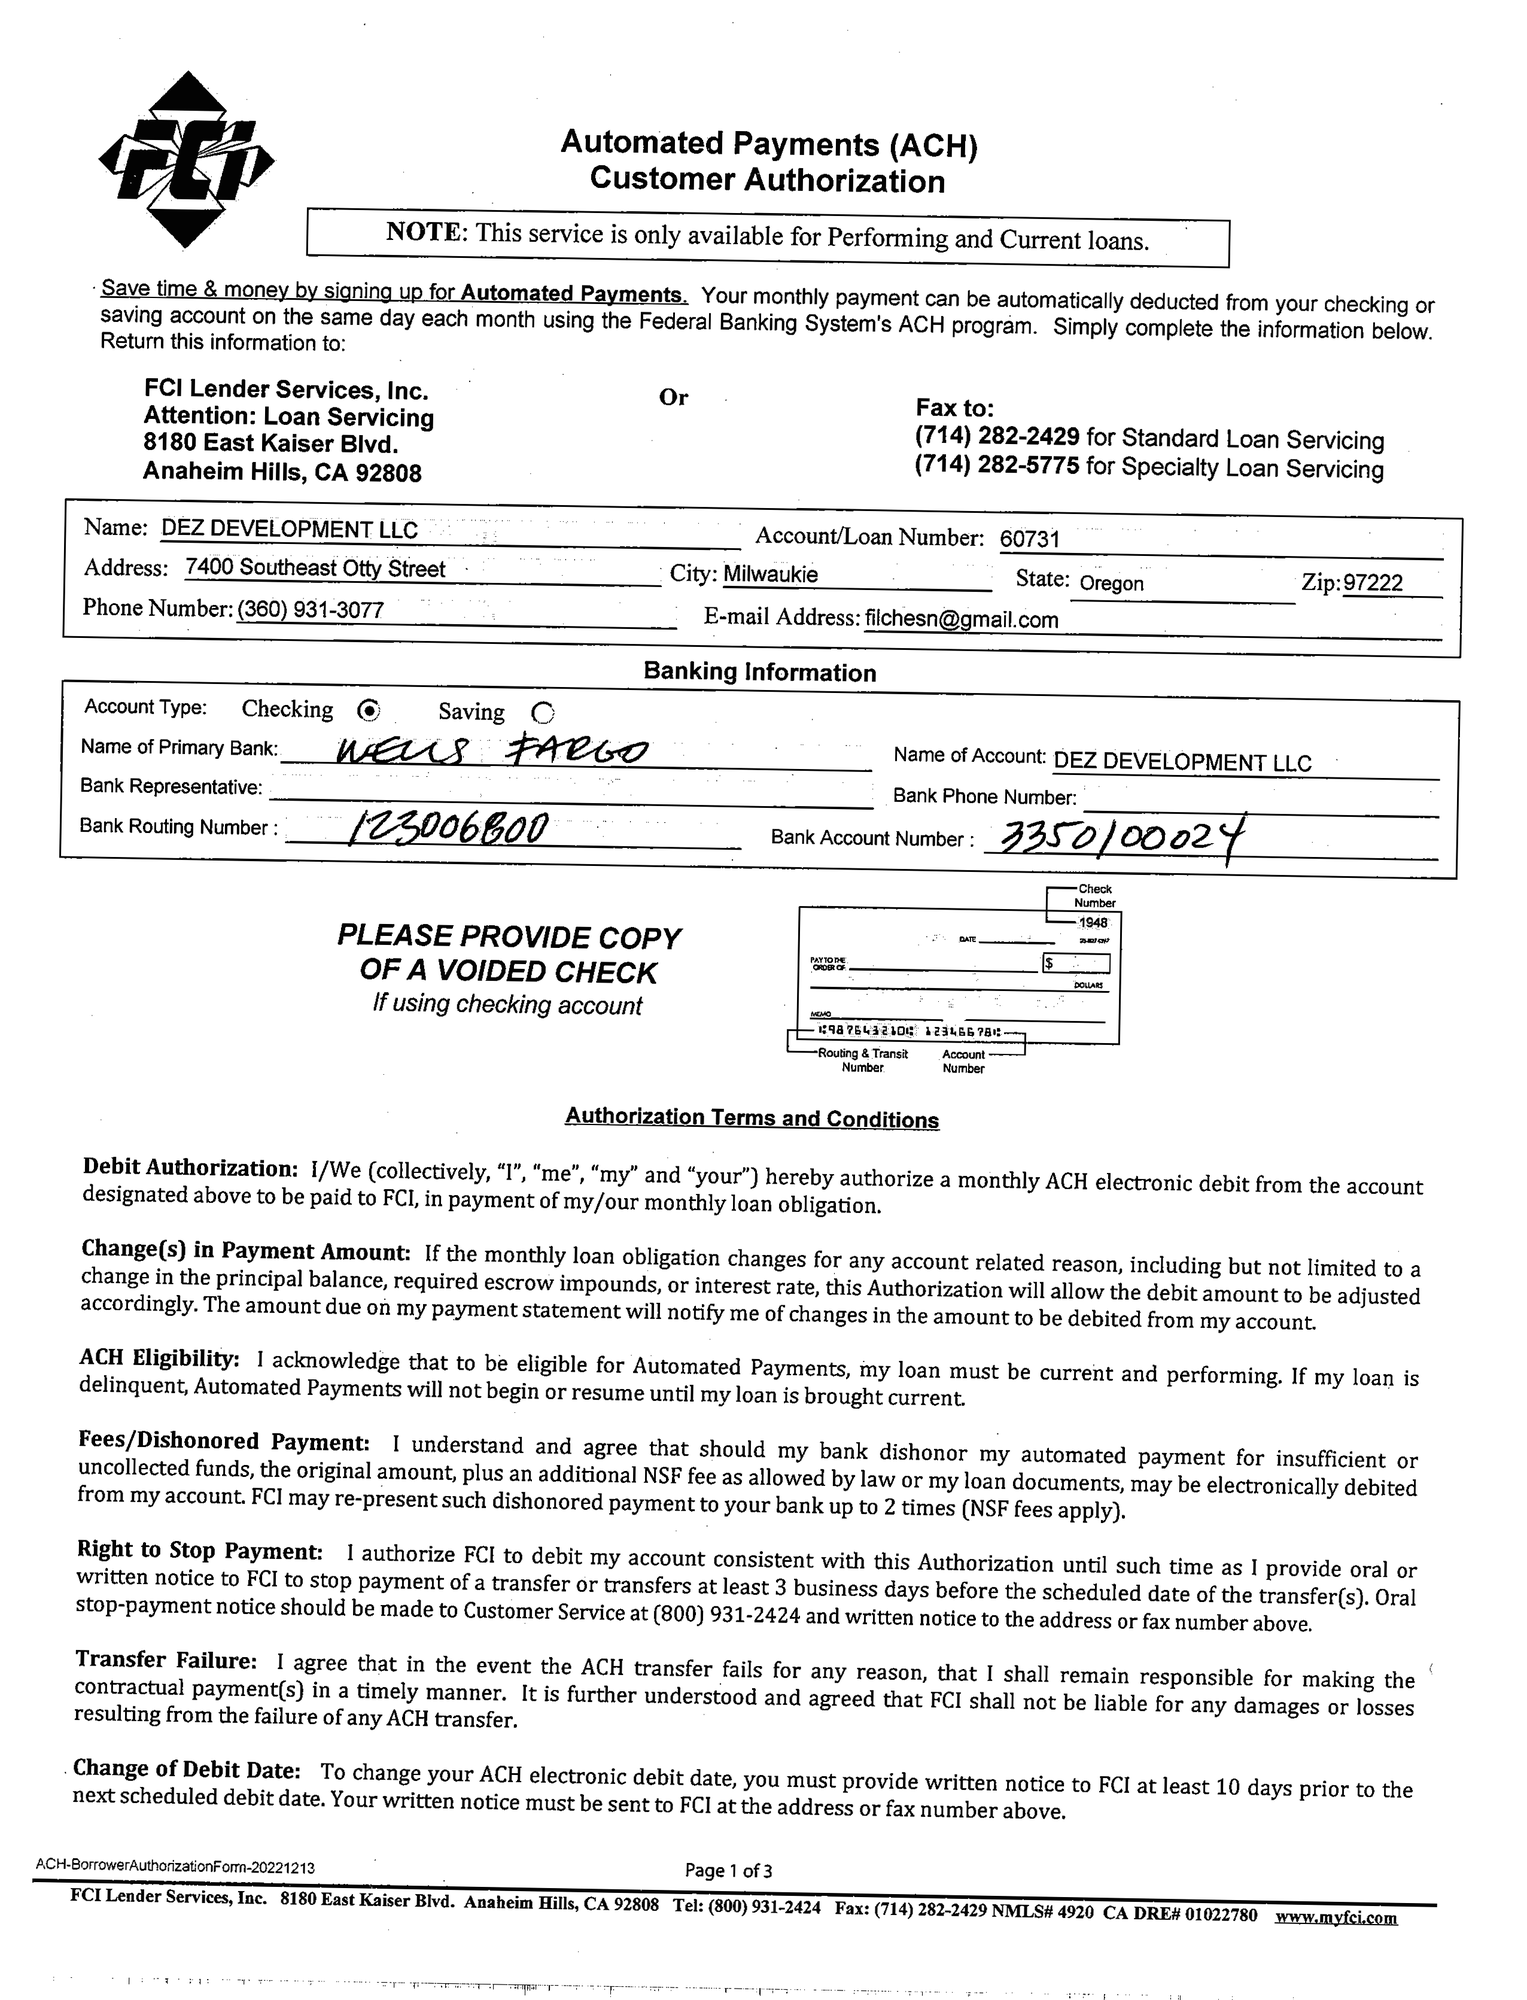 FCI
Automated Payments (ACH)
Customer Authorization
NOTE: This service is only available for Performing and Current loans.
Save time & money by signing up for Automated Payments. Your monthly payment can be automatically deducted from your checking or
saving account on the same day each month using the Federal Banking System's ACH program. Simply complete the information below.
Return this information to:
FCI Lender Services, Inc.
Attention: Loan Servicing
8180 East Kaiser Blvd.
Anaheim Hills, CA 92808
Or
Fax to:
(714) 282-2429 for Standard Loan Servicing
(714) 282-5775 for Specialty Loan Servicing
Name: DEZ DEVELOPMENT LLC Account/Loan Number: 60731
Address: 7400 Southeast Otty Street City: Milwaukie State: Oregon Zip: 97222
Phone Number: (360) 931-3077 E-mail Address: filchesn@gmail.com
Banking Information
Account Type: Checking Saving
Name of Primary Bank: WELLS FARGO Name of Account: DEZ DEVELOPMENT LLC
Bank Representative: Bank Phone Number:
Bank Routing Number : 123006800 Bank Account Number : 3350100024
PLEASE PROVIDE COPY
OF A VOIDED CHECK
If using checking account
Check
Number
1948
DATE
PAY TO THE
ORDER OF
$
DOLLARS
MEMO
Routing & Transit
Number
Account
Number
Authorization Terms and Conditions
Debit Authorization: I/We (collectively, “I”, “me”, “my” and “your”) hereby authorize a monthly ACH electronic debit from the account
designated above to be paid to FCI, in payment of my/our monthly loan obligation.
Change(s) in Payment Amount: If the monthly loan obligation changes for any account related reason, including but not limited to a
change in the principal balance, required escrow impounds, or interest rate, this Authorization will allow the debit amount to be adjusted
accordingly. The amount due on my payment statement will notify me of changes in the amount to be debited from my account.
ACH Eligibility: I acknowledge that to be eligible for Automated Payments, my loan must be current and performing. If my loan is
delinquent, Automated Payments will not begin or resume until my loan is brought current.
Fees/Dishonored Payment: I understand and agree that should my bank dishonor my automated payment for insufficient or
uncollected funds, the original amount, plus an additional NSF fee as allowed by law or my loan documents, may be electronically debited
from my account. FCI may re-present such dishonored payment to your bank up to 2 times (NSF fees apply).
Right to Stop Payment: I authorize FCI to debit my account consistent with this Authorization until such time as I provide oral or
written notice to FCI to stop payment of a transfer or transfers at least 3 business days before the scheduled date of the transfer(s). Oral
stop-payment notice should be made to Customer Service at (800) 931-2424 and written notice to the address or fax number above.
Transfer Failure: I agree that in the event the ACH transfer fails for any reason, that I shall remain responsible for making the
contractual payment(s) in a timely manner. It is further understood and agreed that FCI shall not be liable for any damages or losses
resulting from the failure of any ACH transfer.
Change of Debit Date: To change your ACH electronic debit date, you must provide written notice to FCI at least 10 days prior to the
next scheduled debit date. Your written notice must be sent to FCI at the address or fax number above.
ACH-BorrowerAuthorizationForm-20221213
Page 1 of 3
FCI Lender Services, Inc. 8180 East Kaiser Blvd. Anaheim Hills, CA 92808 Tel: (800) 931-2424 Fax: (714) 282-2429 NMLS# 4920 CA DRE# 01022780 www.myfci.com